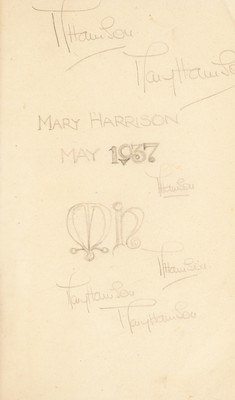 M Harrison
Mary Harrison
MARY HARRISON
MAY 1937
Harrison
M H
M Harrison
Mary Harrison
Mary Harrison